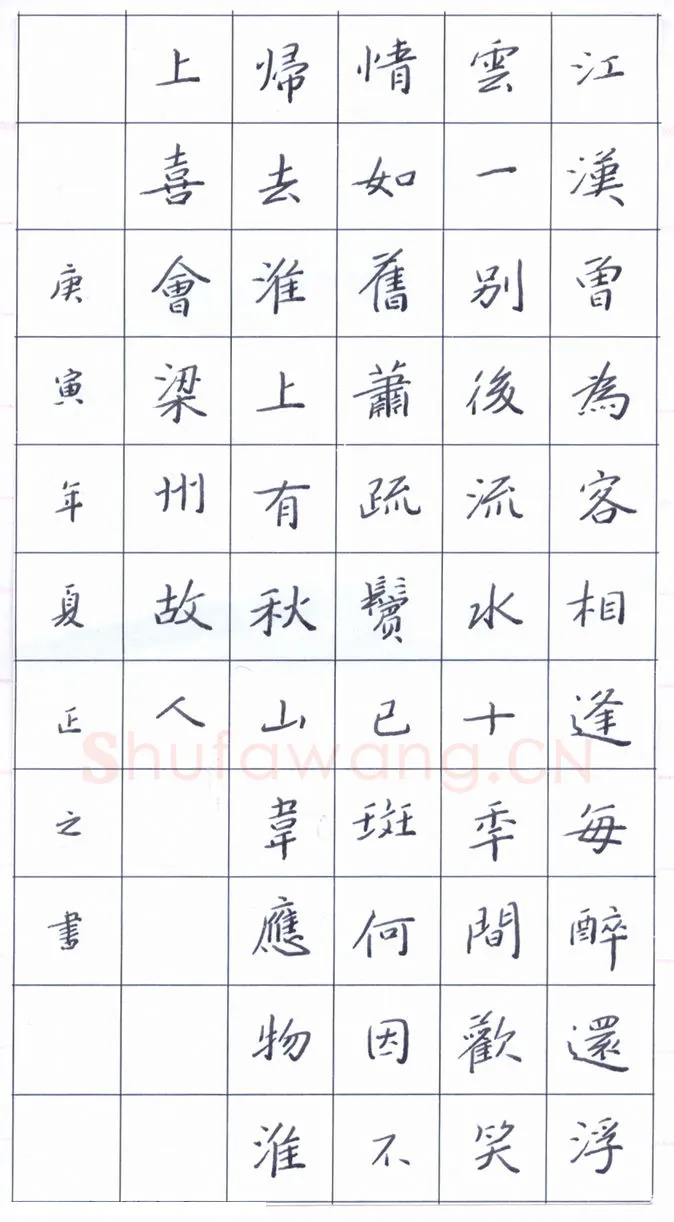 江漢曾為客相逢每醉還浮
雲一別後流水十年間歡笑
情如舊蕭疏鬢已斑何因不
歸去淮上有秋山韋應物淮
上喜會梁州故人
庚寅年夏正之書
Shufawang.CN